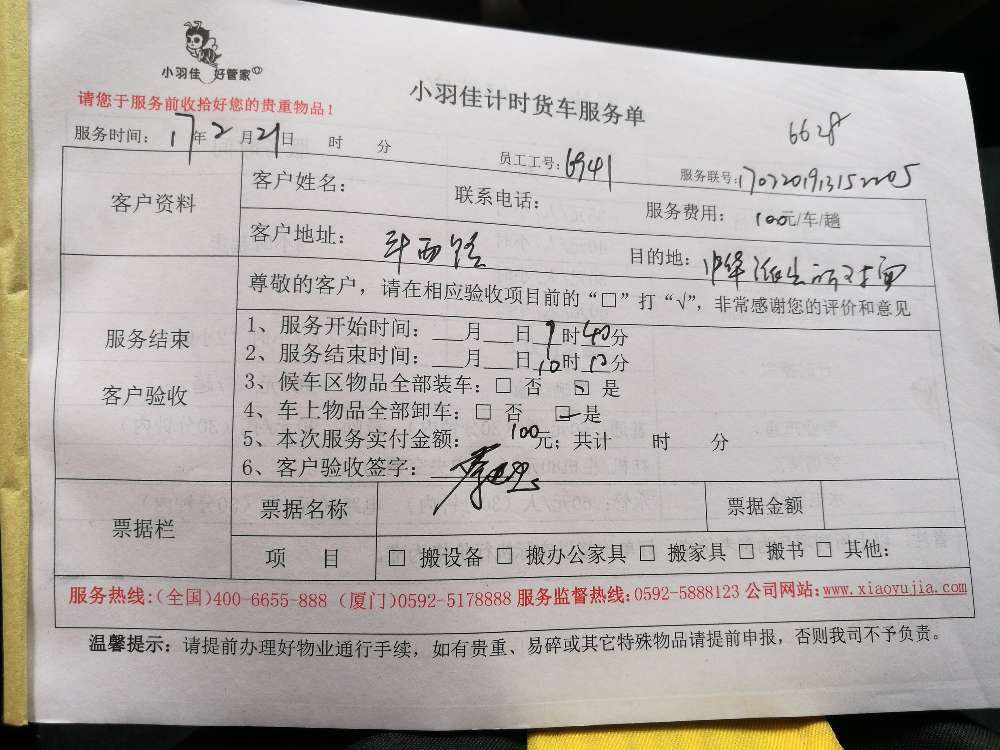 小羽佳 好管家
请您于服务前收拾好您的贵重物品！
小羽佳计时货车服务单
6628
服务时间： 17年 2月 21日 时 分
员工工号：6941
服务联号：
客户资料
客户姓名： 联系电话： 服务费用： 100元/车/趟
客户地址： 斗西路 目的地： 派出所对面
服务结束
客户验收
尊敬的客户，请在相应验收项目前的“□”打“√”，非常感谢您的评价和意见
1、服务开始时间：___月___日 9时40分
2、服务结束时间：___月___日 10时10分
3、候车区物品全部装车：□ 否 ☑ 是
4、车上物品全部卸车：□ 否 ☑ 是
5、本次服务实付金额： 100元；共计 时 分
6、客户验收签字：
票据栏
票据名称 票据金额
项 目 □ 搬设备 □ 搬办公家具 □ 搬家具 □ 搬书 □ 其他：
服务热线：(全国)400-6655-888 (厦门)0592-5178888 服务监督热线：0592-5888123 公司网站：www.xiaoyujia.com
温馨提示：请提前办理好物业通行手续，如有贵重、易碎或其它特殊物品请提前申报，否则我司不予负责。